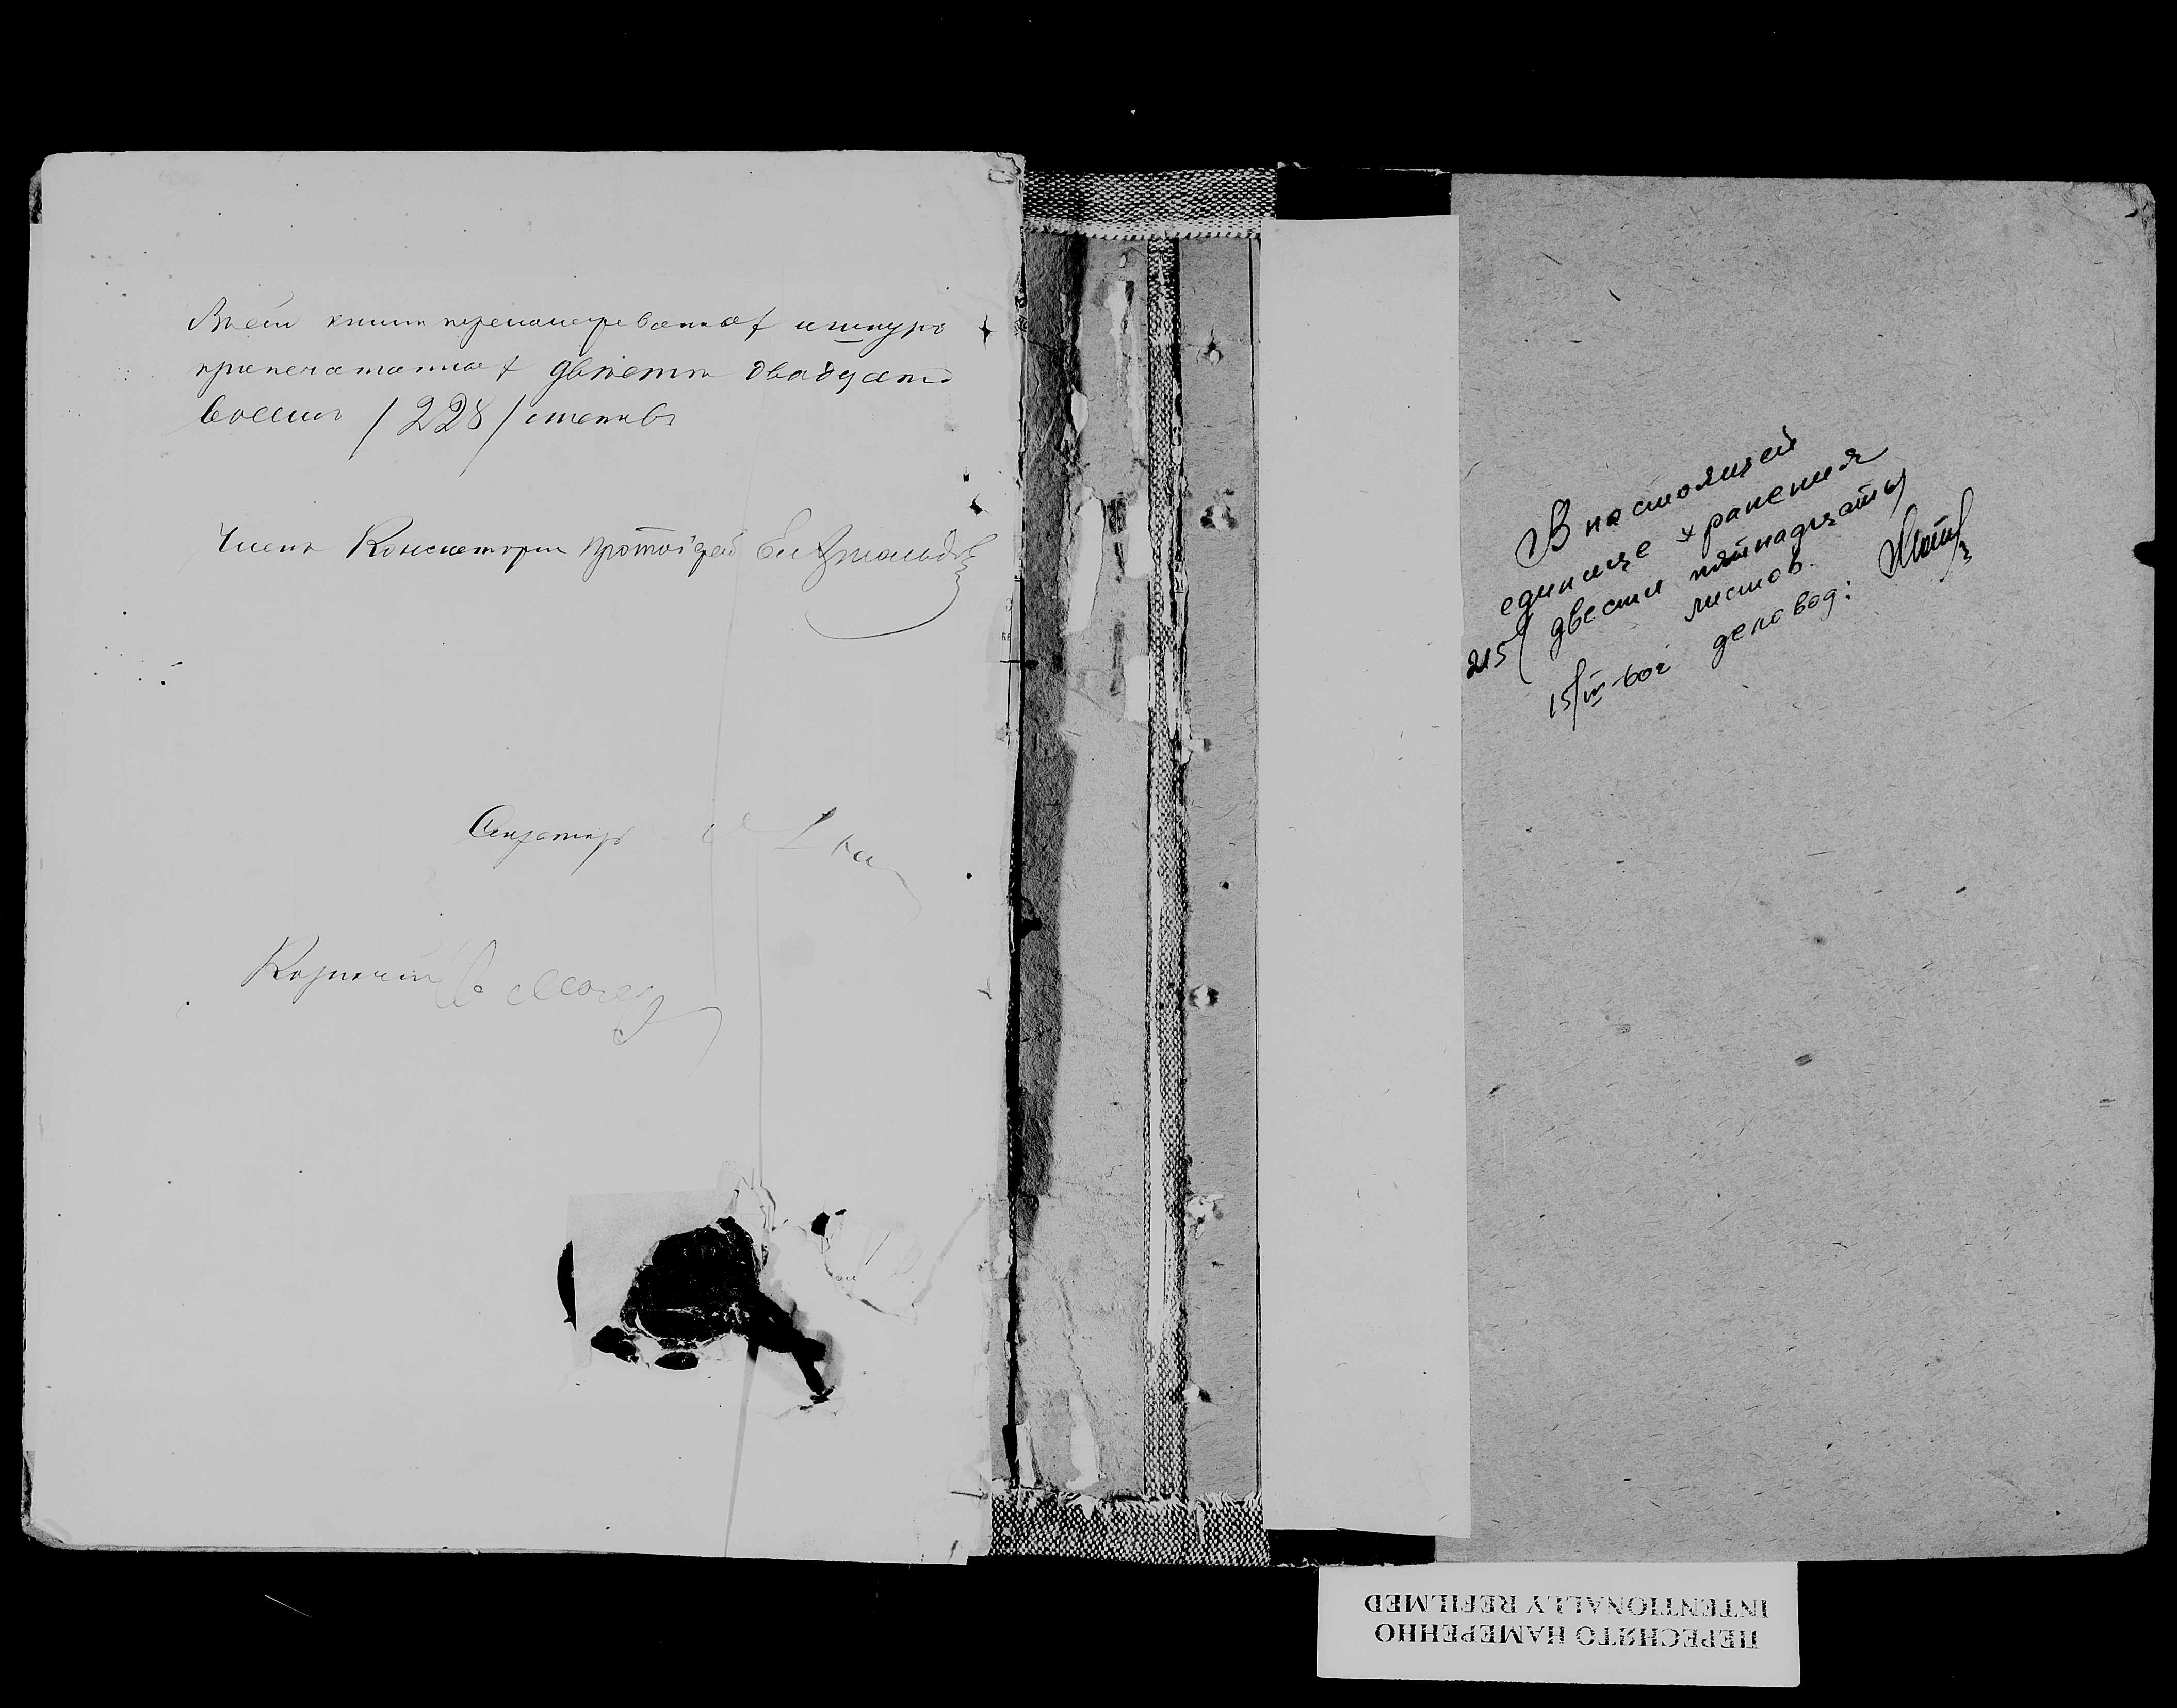 В сей книге перенумерованных и шнуро
припечатанных двѣсти двадцать
восемь /228/ листовъ
Членъ Консисторіи Протоіерей
Секретарь
Казначей
В настоящей
единице хранения
215/ двести пятнадцать/
листов.
15/IV-60г деловод:
ПЕРЕСНЯТО НАМЕРЕННО
INTENTIONALLY REFILMED